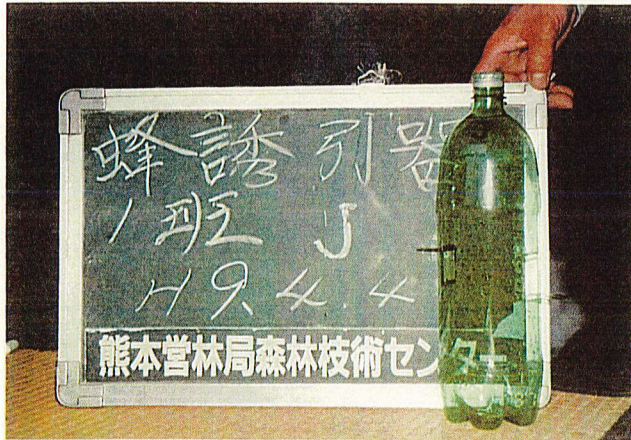 蜂誘引器
1班 J
H9.4.4
熊本営林局森林技術センター